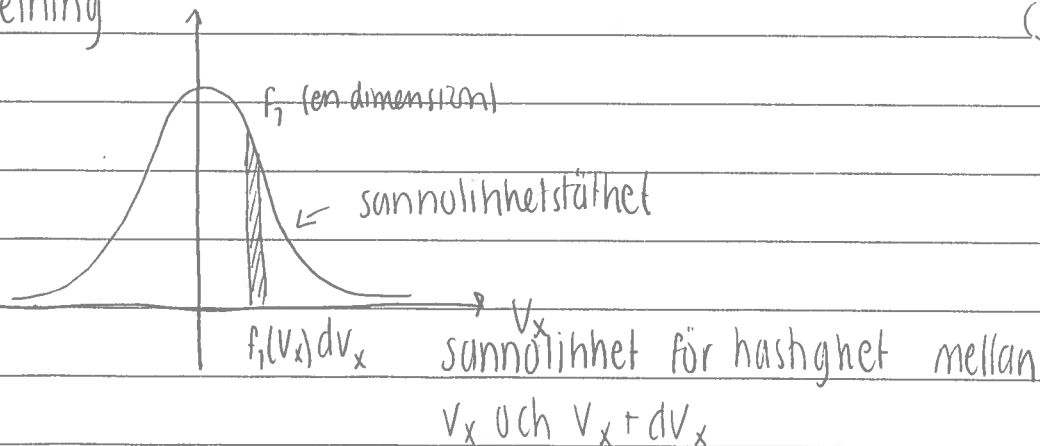 f₁ (en dimension)
sannolikhetstäthet
Vₓ
f₁(Vₓ)dVₓ sannolikhet för hastighet mellan
Vₓ och Vₓ + dVₓ